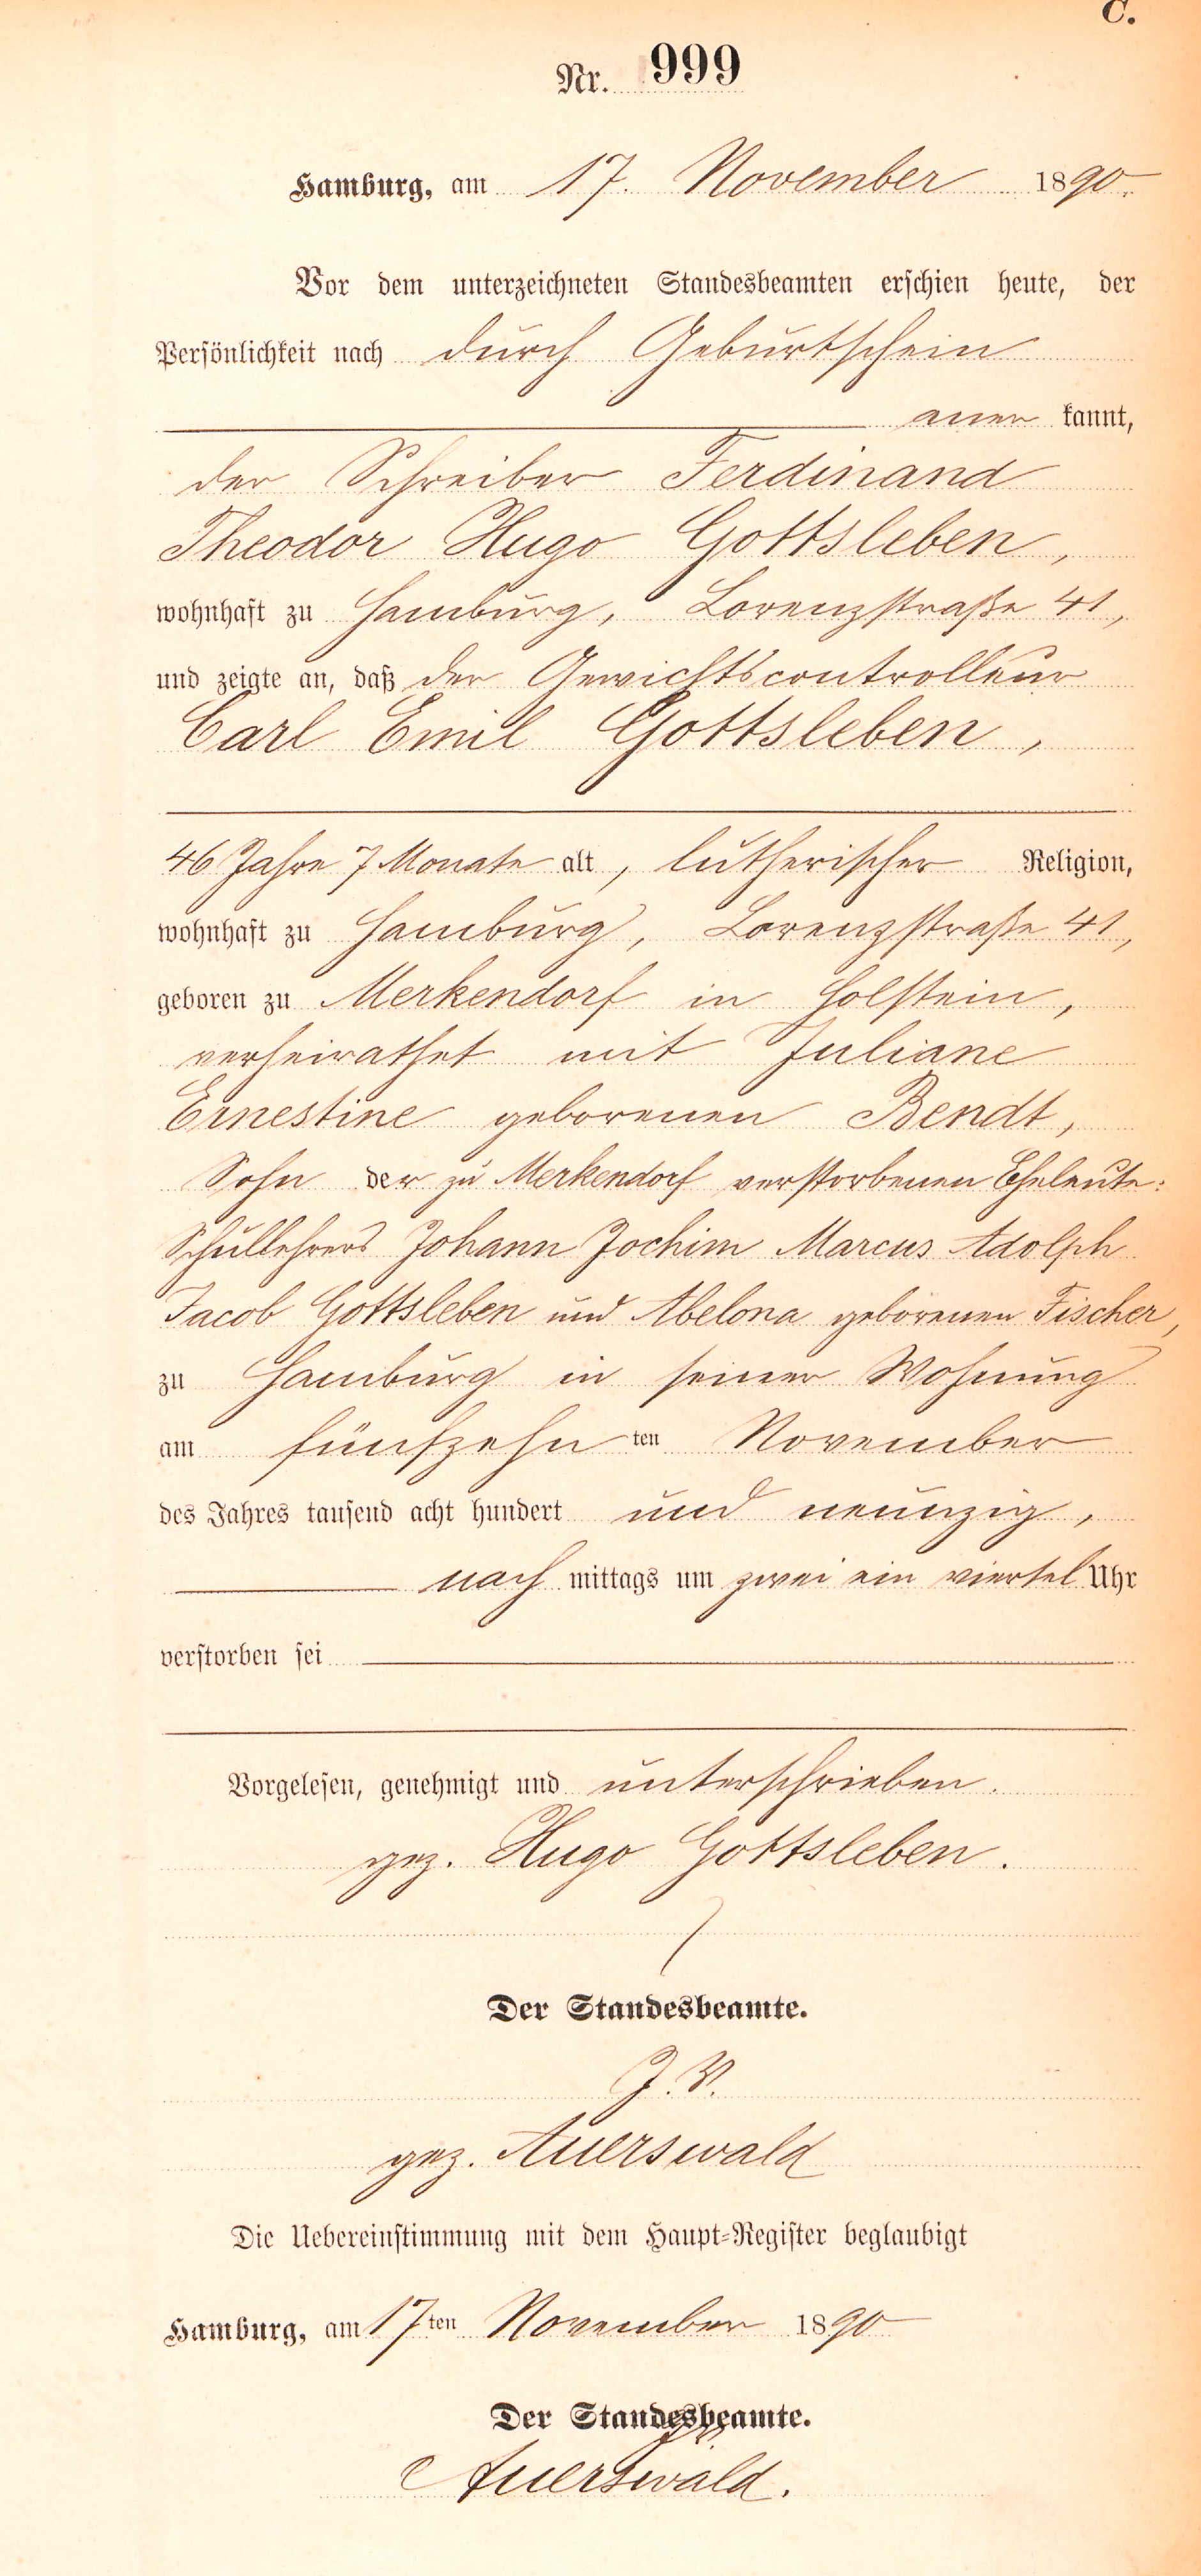 C.
Nr. 999
Hamburg, am 17. November 1890.
Vor dem unterzeichneten Standesbeamten erschien heute, der
Persönlichkeit nach durch Geburtschein
aner kannt,
der Schreiber Ferdinand
Theodor Hugo Gottsleben,
wohnhaft zu Hamburg, Lorenzstraße 41,
und zeigte an, daß der Gewichtscontrolleur
Carl Emil Gottsleben,
46 Jahre 7 Monate alt, lutherischer Religion,
wohnhaft zu Hamburg, Lorenzstraße 41,
geboren zu Merkendorf in Holstein,
verheirathet mit Juliane
Ernestine geborenen Bendt,
Sohn der zu Merkendorf verstorbenen Eheleute:
Schullehrers Johann Jochim Marcus Adolph
Jacob Gottsleben und Abelona geborenen Fischer,
zu Hamburg in seiner Wohnung
am fünfzehn ten November
des Jahres tausend acht hundert und neunzig,
nach mittags um zwei ein viertel Uhr
verstorben sei
Vorgelesen, genehmigt und unterschrieben.
gez. Hugo Gottsleben.
Der Standesbeamte.
J. V.
gez. Auerswald
Die Uebereinstimmung mit dem Haupt-Register beglaubigt
Hamburg, am 17ten November 1890
Der Standesbeamte.
Auerswald.